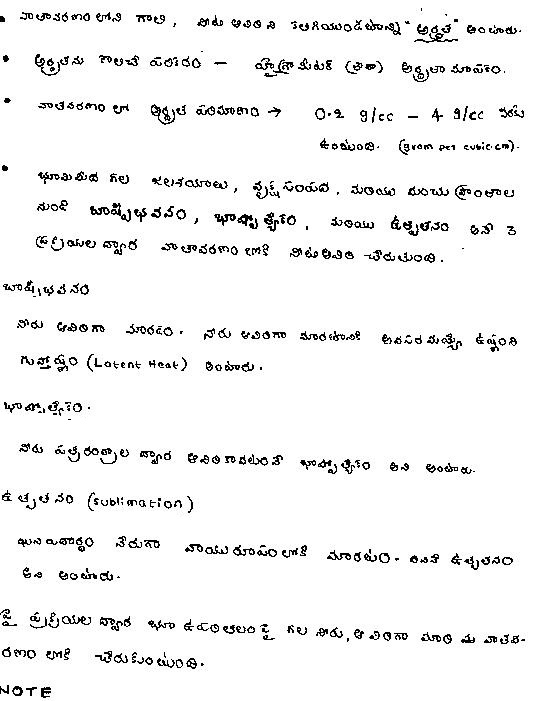 • వాతావరణంలోని గాలి, నీటి ఆవిరిని కలిగియుండటాన్ని "ఆర్ద్రత" అంటారు.
• ఆర్ద్రతను కొలిచే పరికరం – హైగ్రోమీటర్ (లేదా) ఆర్ద్రతా మాపకం.
• వాతావరణం లో ఆర్ద్రత పరిమాణం → 0.2 g/cc – 4 g/cc వరకు
ఉంటుంది. (gram per cubic cm).
• భూమిమీద గల జలాశయాలు, వృక్ష సంపద, మరియు మంచు ప్రాంతాల
నుండి బాష్పీభవనం, భాష్పోత్సేకం, మరియు ఉత్పతనం అనే 3
ప్రక్రియల ద్వారా వాతావరణం లోకి నీటిఆవిరి చేరుతుంది.
బాష్పీభవనం
నీరు ఆవిరిగా మారడం. నీరు ఆవిరిగా మారటానికి అవసరమయ్యే ఉష్ణంని
గుప్తోష్ణం (Latent Heat) అంటారు.
భాష్పోత్సేకం.
నీరు పత్ర రంధ్రాల ద్వారా ఆవిరికావటంనే భాష్పోత్సేకం అని అంటారు.
ఉత్పతనం (sublimation)
ఘనపదార్థం నేరుగా వాయురూపంలోకి మారటం. అనేది ఉత్పతనం
అని అంటారు.
పై ప్రక్రియల ద్వారా భూ ఉపరితలం పై గల నీరు, ఆవిరిగా మారి వాతవ-
రణం లోకి చేరుకుంటుంది.
NOTE